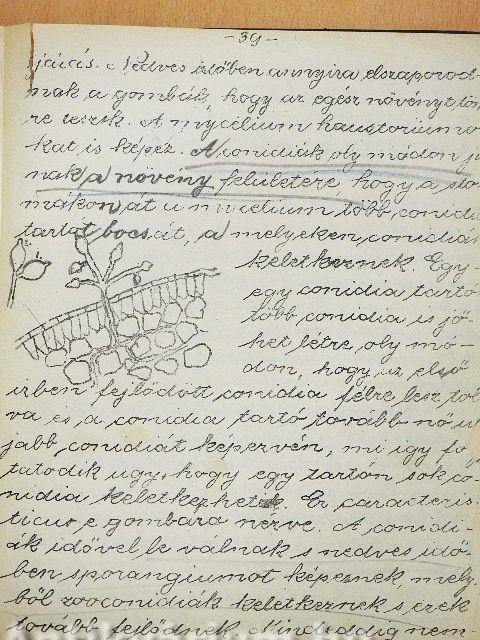 - 39 -
jáás. Nedves időben annyira elszaporod-
nak a gombák, hogy az egész növényt tön
re teszik. A mycélium haustoriumo
kat is képez. A conidiák oly módon ju
nak a növény felületére, hogy a sto
mákon át a mycelium több conidia
tartót bocsát, a melyeken conidiák
keletkeznek. Egy-
egy conidia tartó
több conidia is jö-
het létre, oly mó-
don, hogy az első
ízben fejlődött conidia félre lesz tol
va és a conidia tartó tovább nő új
jabb conidiát képezvén, mi így fo
tatodik úgy, hogy egy tartón sok co-
nidia keletkezhetik. Ez caracteris
ticus e gombára nézve. A conidi-
ák idővel le válnak s nedves idő-
ben sporangiumot képeznek, mely-
ből zooconidiák keletkeznek s ezek
tovább fejlődnek. Mindeddig nem